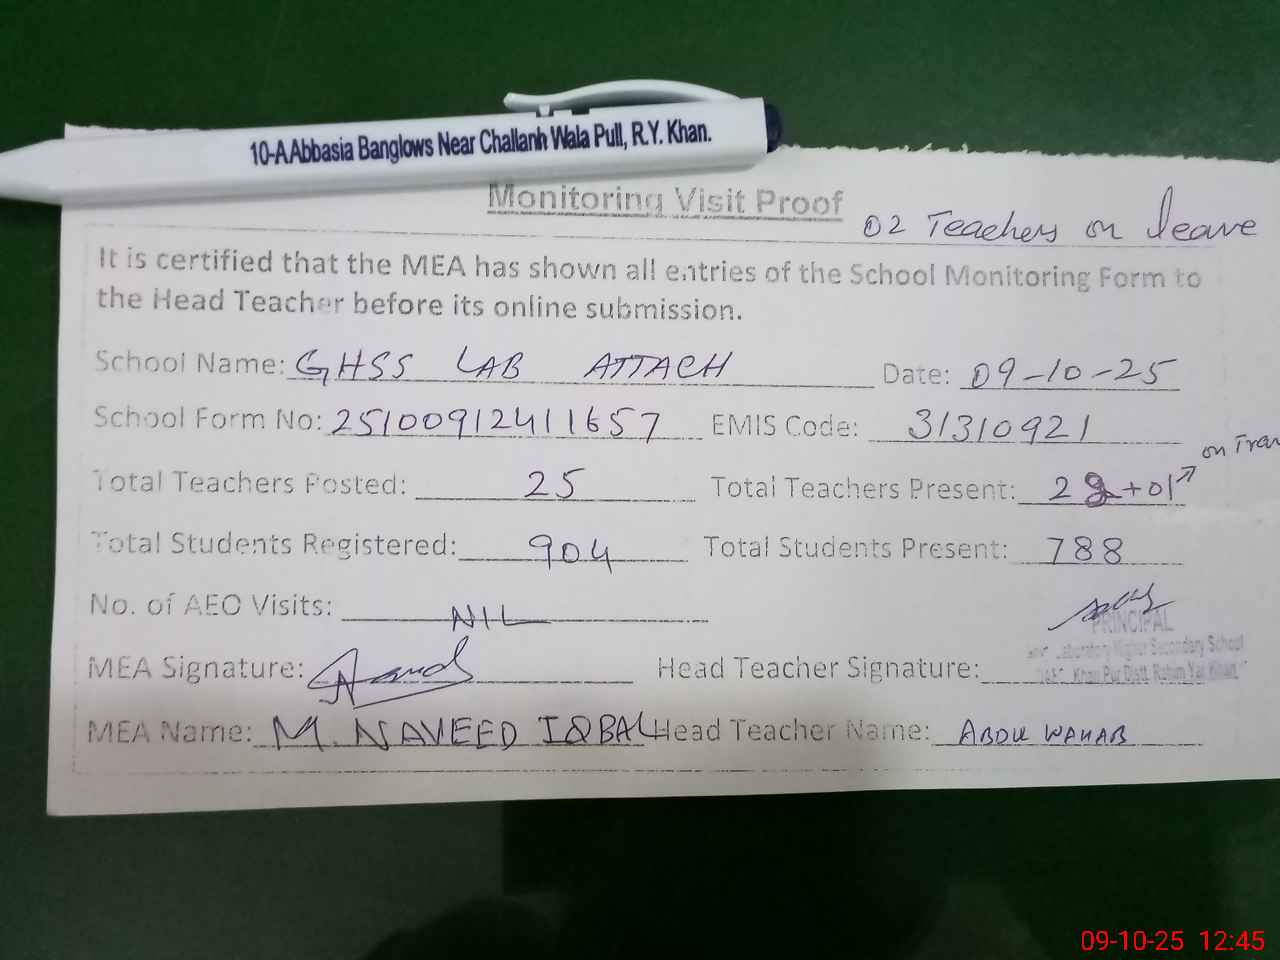 10-A Abbasia Banglows Near Challanh Wala Pull, R.Y. Khan.
Monitoring Visit Proof
02 Teachers on leave
It is certified that the MEA has shown all entries of the School Monitoring Form to
the Head Teacher before its online submission.
School Name: GHSS LAB ATTACH Date: 09-10-25
School Form No: 25100912411657 EMIS Code: 31310921
on Tran
Total Teachers Posted: 25 Total Teachers Present: 22+01
Total Students Registered: 904 Total Students Present: 788
No. of AEO Visits: NIL
PRINCIPAL
Laboratory Higher Secondary School
Khan Pur Distt. Rahim Yar Khan
MEA Signature: Head Teacher Signature:
MEA Name: M. NAVEED IQBAL Head Teacher Name: ABDU WAHAB
09-10-25 12:45